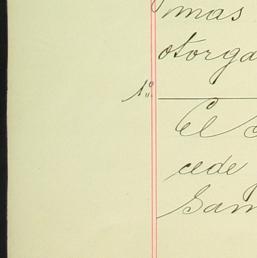 mas
otorga
1º
El
cede
San